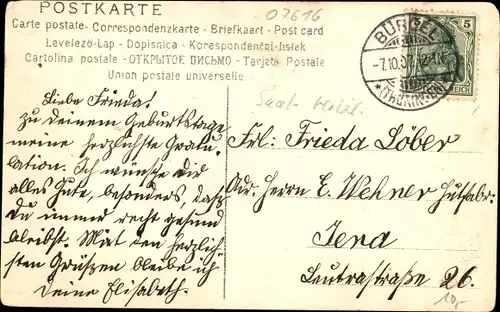 POSTKARTE
02616
Carte postale - Correspondenzkarte - Briefkaart - Post card
Levelező-Lap - Dopisnica - Korespondenční-lístek
Cartolina postale - ОТКРЫТОЕ ПИСЬМО - Tarjeta Postale
Union postale universelle
BÜRGEL
-7.10.07. 12-1N.
* (THÜRINGEN)
5
REICH
Liebe Frieda!
Zu Deinem Geburtstage
meine herzlichste Gratu-
lation. Ich wünsche Dir
alles Gute, besonders, dass
Du immer recht gesund
bleibst. Mit den herzlich-
sten Grüßen bleibe ich
Deine Elisabeth.
Frl: Frieda Löber
Adr. Herrn E. Wehner Hutfabr.
Jena
Leutrastraße 26.
10,-